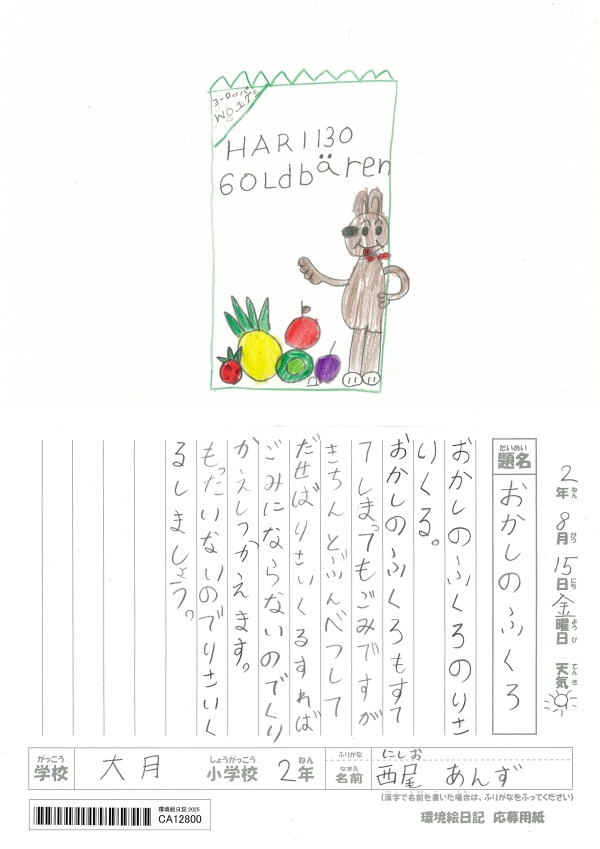 ヨーロッパ
HARII3O
GOLdbären
2年8月15日金曜日 天気
ねん がつ にち ようび てんき
だいめい
題名 おかしのふくろ
おかしのふくろのりさ
いくる。
おかしのふくろもすて
てしまってもごみですが
きちんとぶんべつして
だせばりさいくるすれば
ごみにならないのでくり
かえしつかえます。
もったいないのでりさいく
るしましょう。
がっこう しょうがっこう ねん ふりがな にしお
学校 大月 小学校 2年 名前 西尾 あんず
なまえ
(漢字で名前を書いた場合は、ふりがなをふってください)
環境絵日記 2025
CA12800
環境絵日記 応募用紙